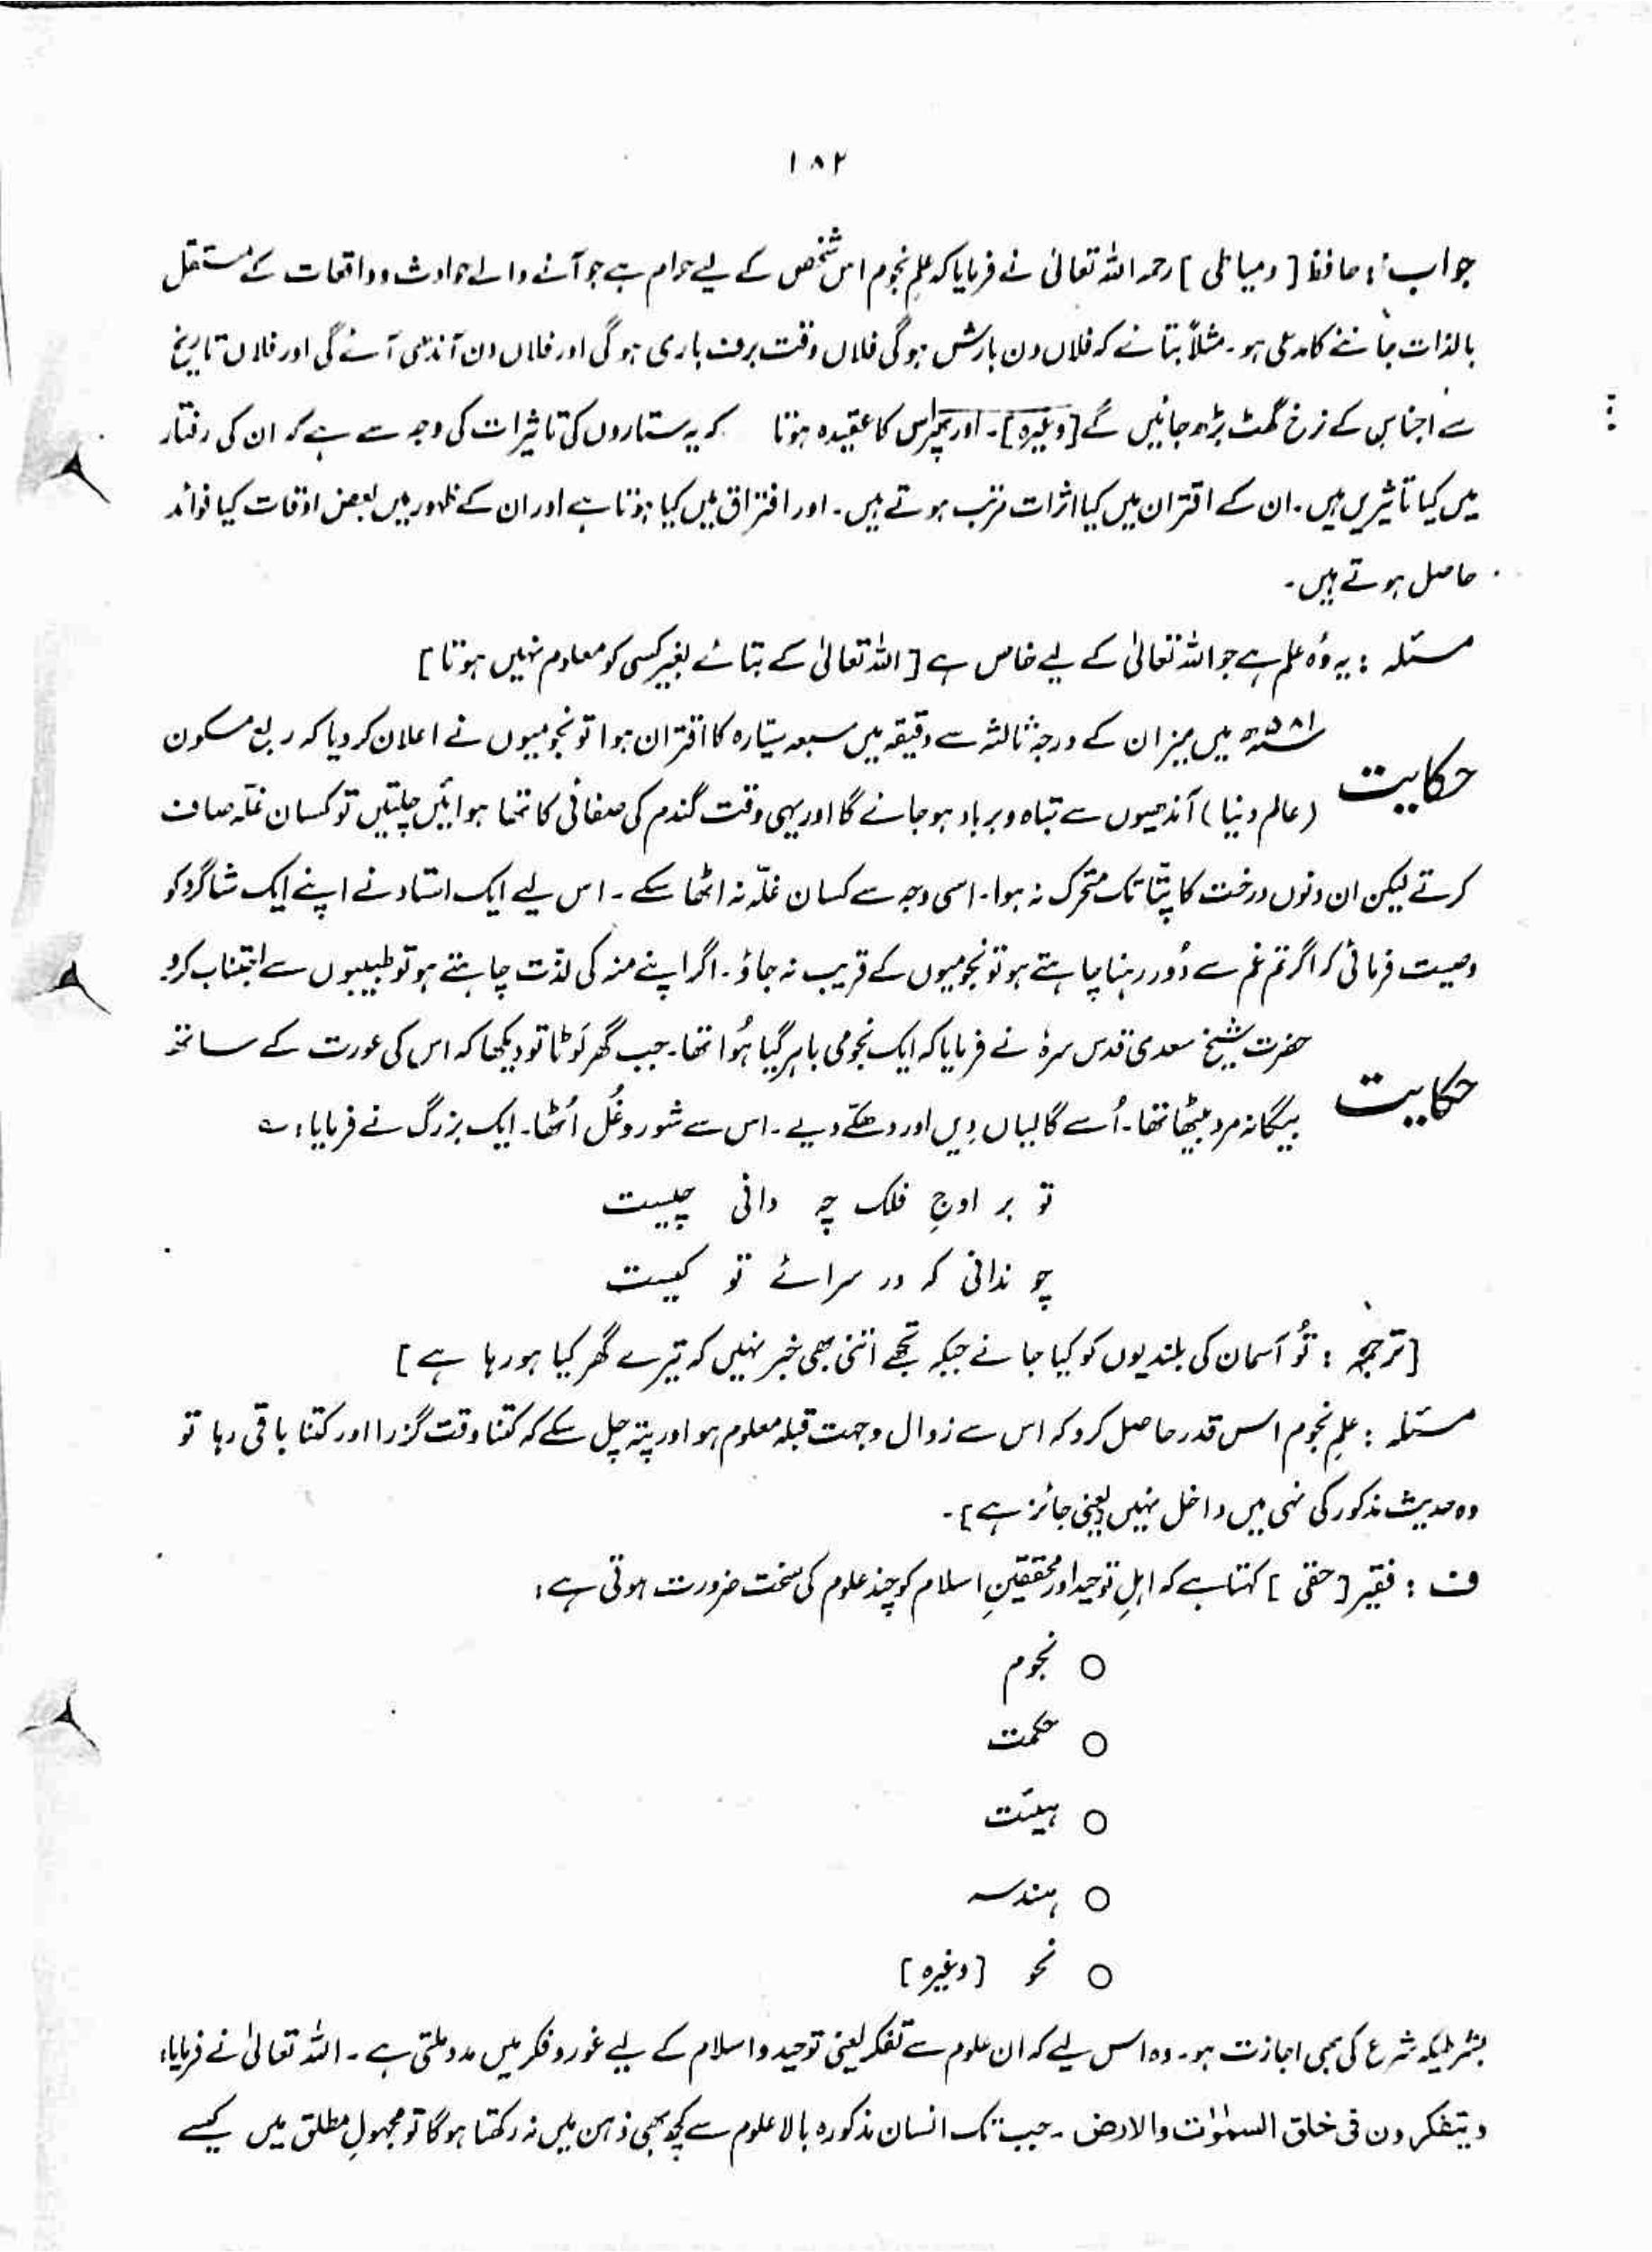 ۱۸۲
جواب : حافظ [ دمیاطی ] رحمہ اللہ تعالیٰ نے فرمایا کہ علم نجوم اس شخص کے لیے حرام ہے جو آنے والے حوادث و واقعات کے مستقل
بالذات جاننے کا مدعی ہو ۔ مثلاً بتائے کہ فلاں دن بارش ہوگی فلاں وقت برف باری ہوگی اور فلاں دن آندھی آئے گی اور فلاں تاریخ
سے اجناس کے نرخ گھٹ بڑھ جائیں گے [وغیرہ] ۔ اور پھر اس کا عقیدہ ہوتا کہ یہ ستاروں کی تاثیرات کی وجہ سے ہے کہ ان کی رفتار
میں کیا تاثیریں ہیں ۔ ان کے اقتران میں کیا اثرات مرتب ہوتے ہیں ۔ اور افتراق میں کیا ہوتا ہے اور ان کے ظہور میں بعض اوقات کیا فوائد
حاصل ہوتے ہیں ۔
مسئلہ : یہ وُہ علم ہے جو اللہ تعالیٰ کے لیے خاص ہے [ اللہ تعالیٰ کے بتائے بغیر کسی کو معلوم نہیں ہوتا ]
حکایت ۵۸۱ھ میں میزان کے درجہٴ ثالثہ سے دقیقہ میں سبعہ سیّارہ کا اقتران ہوا تو نجومیوں نے اعلان کر دیا کہ ربع مسکون
(عالم دنیا) آندھیوں سے تباہ و برباد ہو جائے گا اور یہی وقت گندم کی صفائی کا تھا ہوائیں چلتیں تو کسان غلّہ صاف
کرتے لیکن ان دنوں درخت کا پتّا تک متحرک نہ ہوا ۔ اسی وجہ سے کسان غلّہ نہ اٹھا سکے ۔ اس لیے ایک استاد نے اپنے ایک شاگرد کو
وصیت فرمائی کہ اگر تم غم سے دُور رہنا چاہتے ہو تو نجومیوں کے قریب نہ جاؤ ۔ اگر اپنے منہ کی لذّت چاہتے ہو تو طبیبوں سے اجتناب کرو
حکایت حضرت شیخ سعدی قدس سرہٗ نے فرمایا کہ ایک نجومی باہر گیا ہُوا تھا ۔ جب گھر لَوٹا تو دیکھا کہ اس کی عورت کے ساتھ
بیگانہ مرد بیٹھا تھا ۔ اُسے گالیاں دِیں اور دھکّے دیے ۔ اس سے شور و غُل اُٹھا ۔ ایک بزرگ نے فرمایا : ؎
تو بر اوجِ فلک چہ دانی چیست
چو ندانی کہ در سرائے تو کیست
[ترجمہ : تُو آسمان کی بلندیوں کو کیا جانے جبکہ تجھے اتنی بھی خبر نہیں کہ تیرے گھر کیا ہو رہا ہے ]
مسئلہ : علمِ نجوم اس قدر حاصل کرو کہ اس سے زوال و جہت قبلہ معلوم ہو اور پتہ چل سکے کہ کتنا وقت گزرا اور کتنا باقی رہا تو
وہ حدیث مذکور کی نہی میں داخل نہیں [یعنی جائز ہے] ۔
ف : فقیر [حقی] کہتا ہے کہ اہلِ توحید اور محققینِ اسلام کو چند علوم کی سخت ضرورت ہوتی ہے :
○ نجوم
○ حکمت
○ ہیئت
○ ہندسہ
○ نحو [وغیرہ]
بشرطیکہ شرع کی بھی اجازت ہو ۔ وہ اس لیے کہ ان علوم سے تفکر یعنی توحید و اسلام کے لیے غور و فکر میں مدد ملتی ہے ۔ اللہ تعالیٰ نے فرمایا :
و یتفکرون فی خلق السمٰوٰت والارض ۔ جب تک انسان مذکورہ بالا علوم سے کچھ بھی ذہن میں نہ رکھتا ہوگا تو مجہولِ مطلق میں کیسے